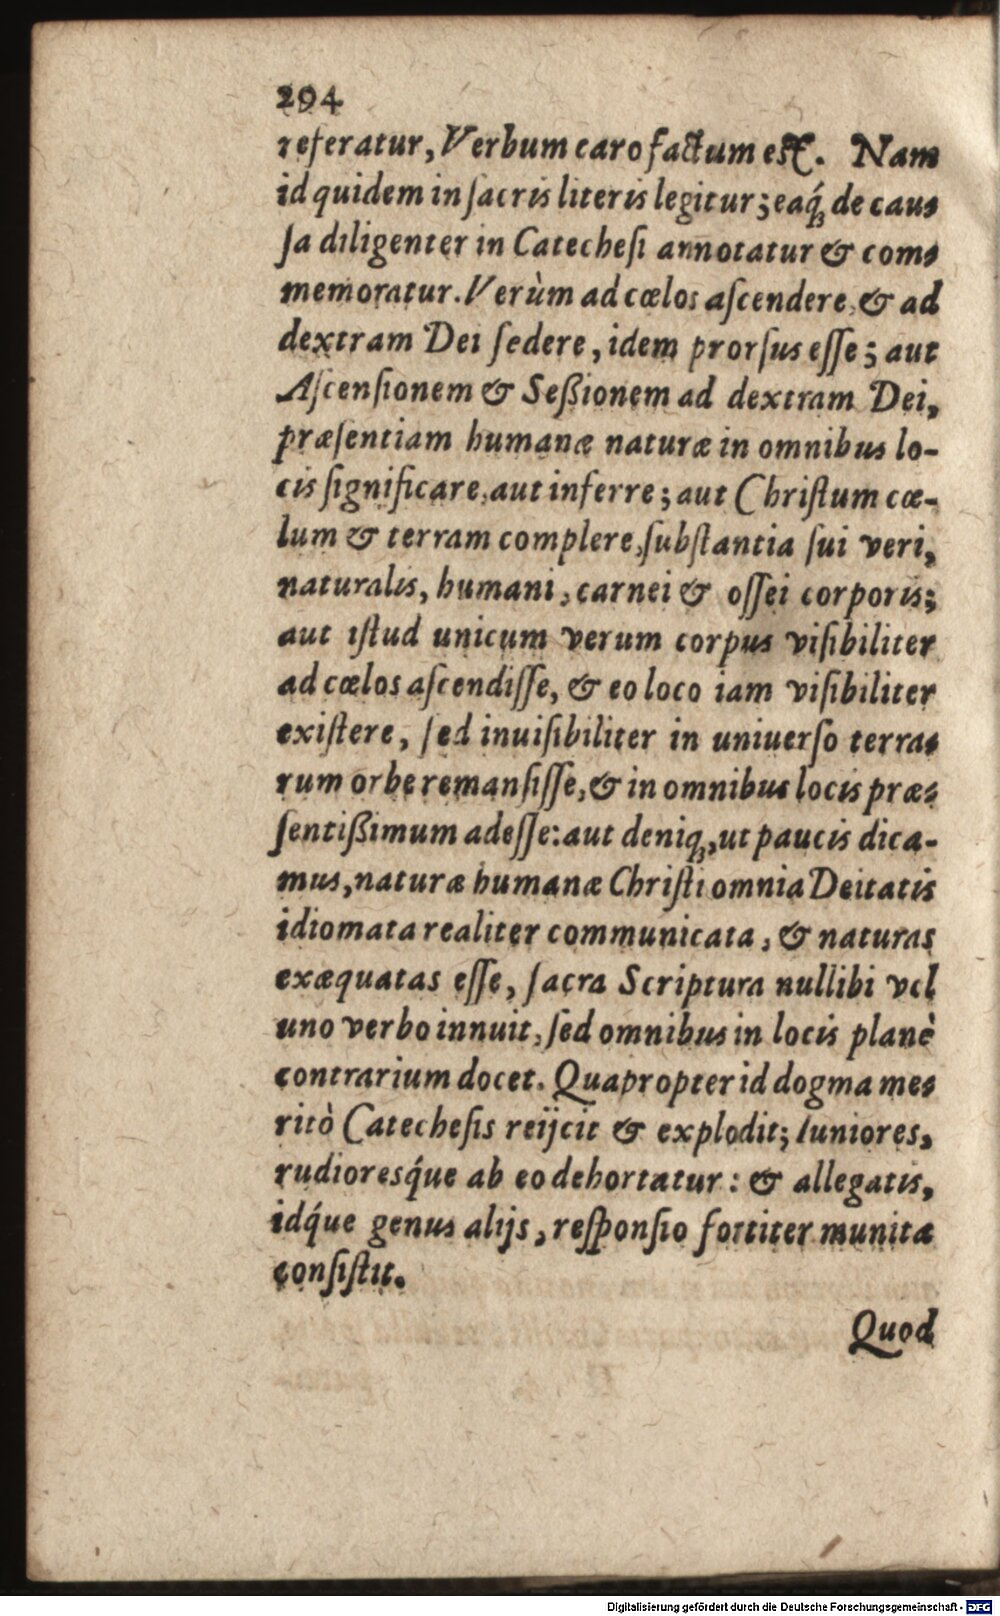 294
referatur, Verbum caro factum est. Nam
id quidem in ſacris literis legitur; eaq́; de cauſ-
ſa diligenter in Catecheſi annotatur & com-
memoratur. Verùm ad cœlos aſcendere, & ad
dextram Dei ſedere, idem prorſus eſſe; aut
Aſcenſionem & Seßionem ad dextram Dei,
præſentiam humanæ naturæ in omnibus lo-
cis ſignificare, aut inferre; aut Chriſtum cœ-
lum & terram complere, ſubſtantia ſui veri,
naturalis, humani, carnei & oſſei corporis;
aut iſtud unicum verum corpus viſibiliter
ad cœlos aſcendiſſe, & eo loco iam viſibiliter
exiſtere, ſed inuiſibiliter in uniuerſo terra-
rum orbe remanſiſſe, & in omnibus locis præ-
ſentißimum adeſſe: aut deniq;, ut paucis dica-
mus, naturæ humanæ Chriſti omnia Deitatis
idiomata realiter communicata, & naturas
exæquatas eſſe, ſacra Scriptura nullibi vel
uno verbo innuit, ſed omnibus in locis planè
contrarium docet. Quapropter id dogma me-
ritò Catecheſis reijcit & explodit; Iuniores,
rudioresq́ue ab eo dehortatur: & allegatis,
idq́ue genus alijs, reſponſio fortiter munita
conſiſtit.
Quod
Digitalisierung gefördert durch die Deutsche Forschungsgemeinschaft - DFG